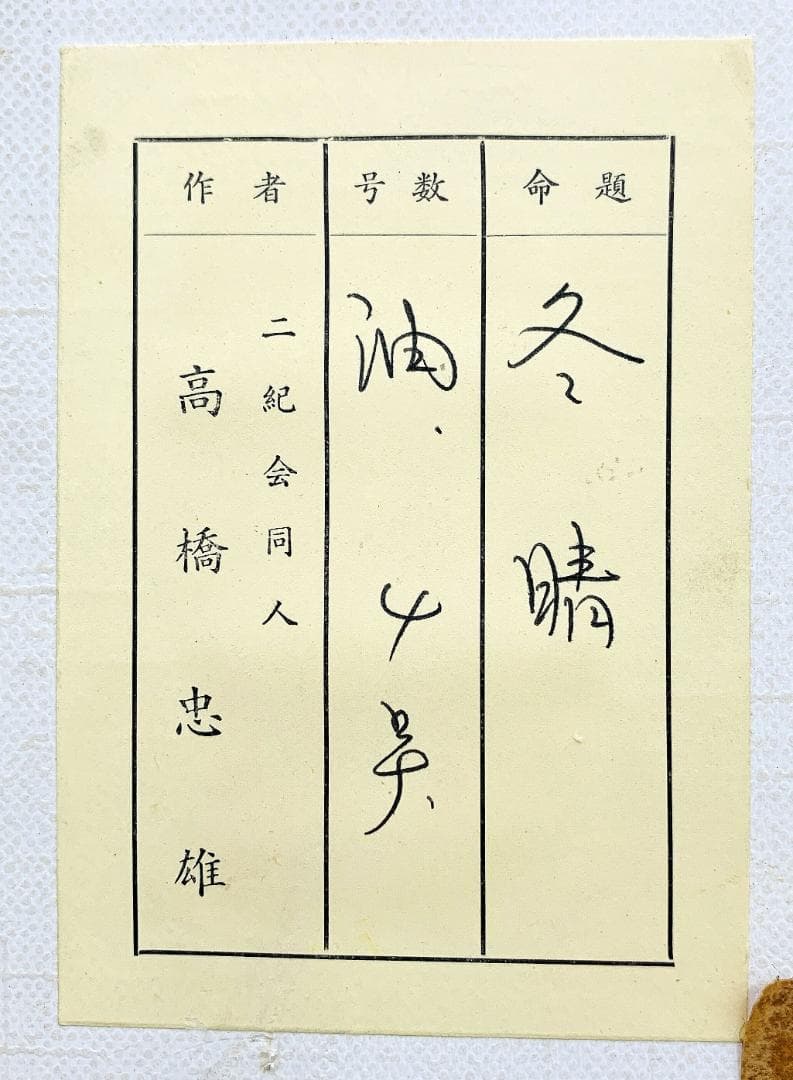 命題
冬晴
号数
油.4号
作者
二紀会同人
高橋忠雄